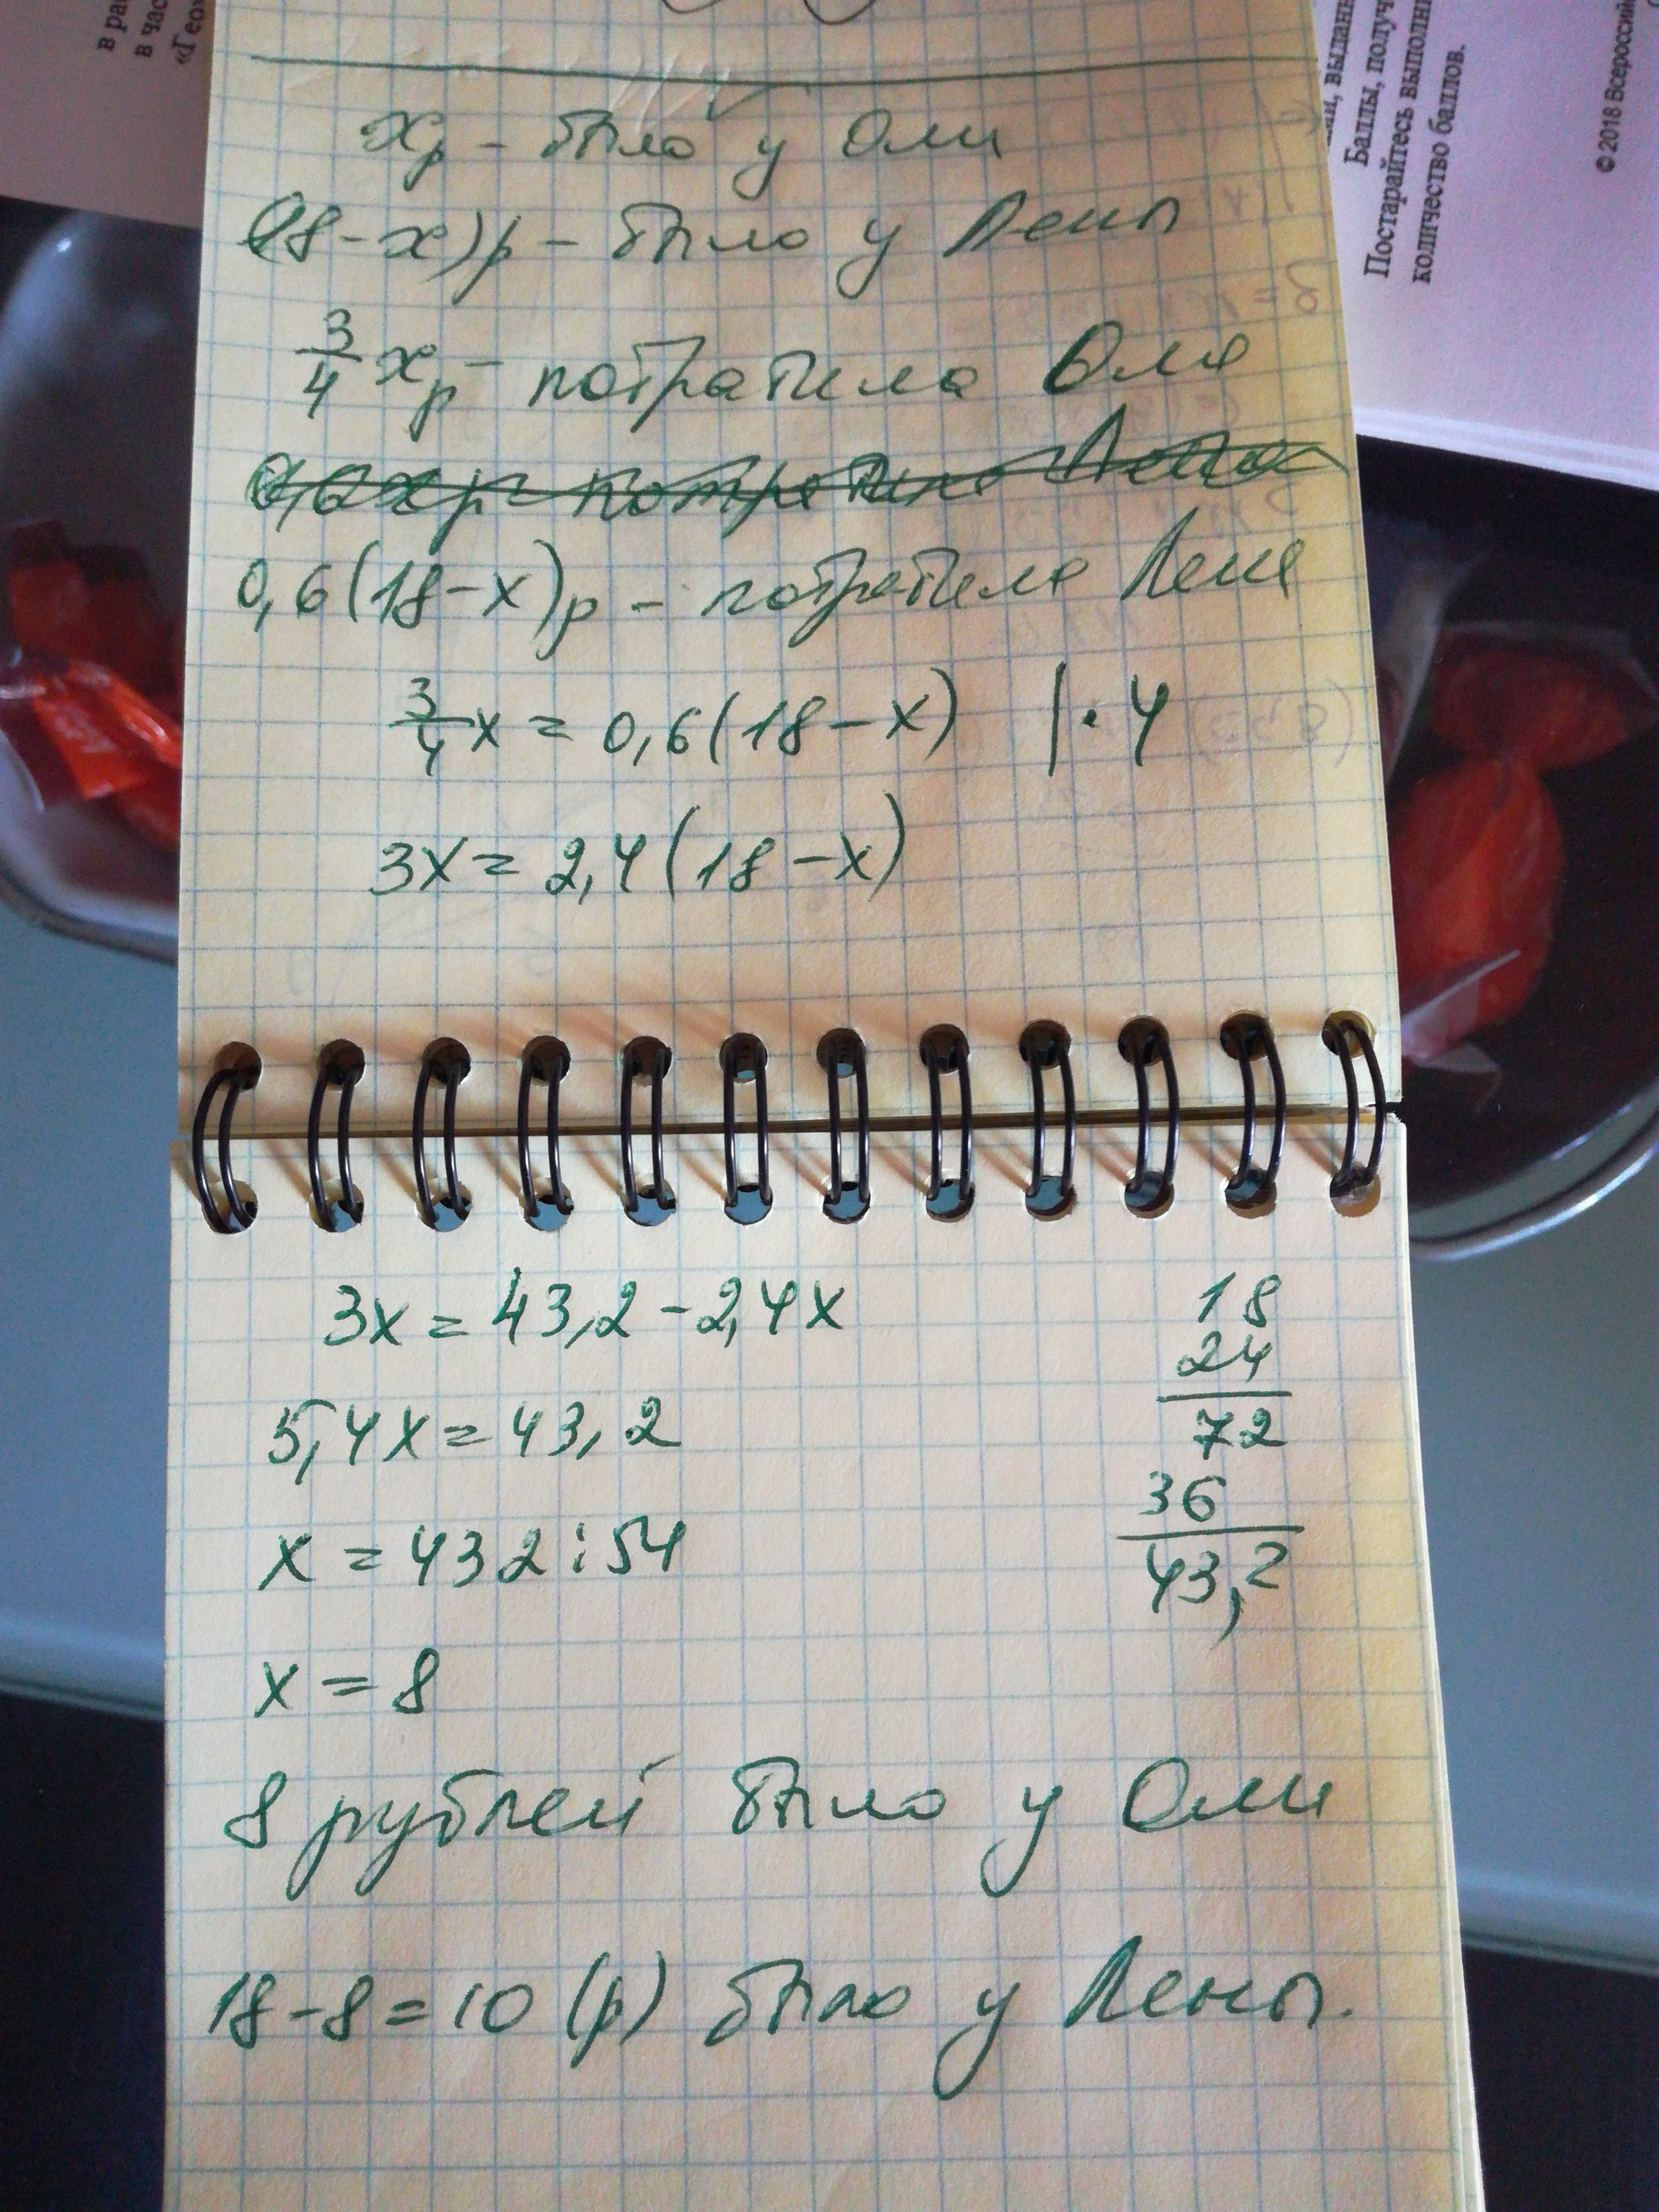 в ра
в час
«Гео
ии, выдан
Баллы, получ
Постарайтесь выполни
количество баллов.
© 2018 Всероссий
xр - было у Оли
(18-x)р - было у Лены
3/4 xр - потратила Оля
0,6(18-x)р - потратила Лена
3/4 x = 0,6(18-x) | · 4
3x = 2,4(18-x)
3x = 43,2 - 2,4x
5,4x = 43,2
x = 432 : 54
x = 8
18
24
72
36
43,2
8 рублей было у Оли
18-8=10 (р) было у Лены.